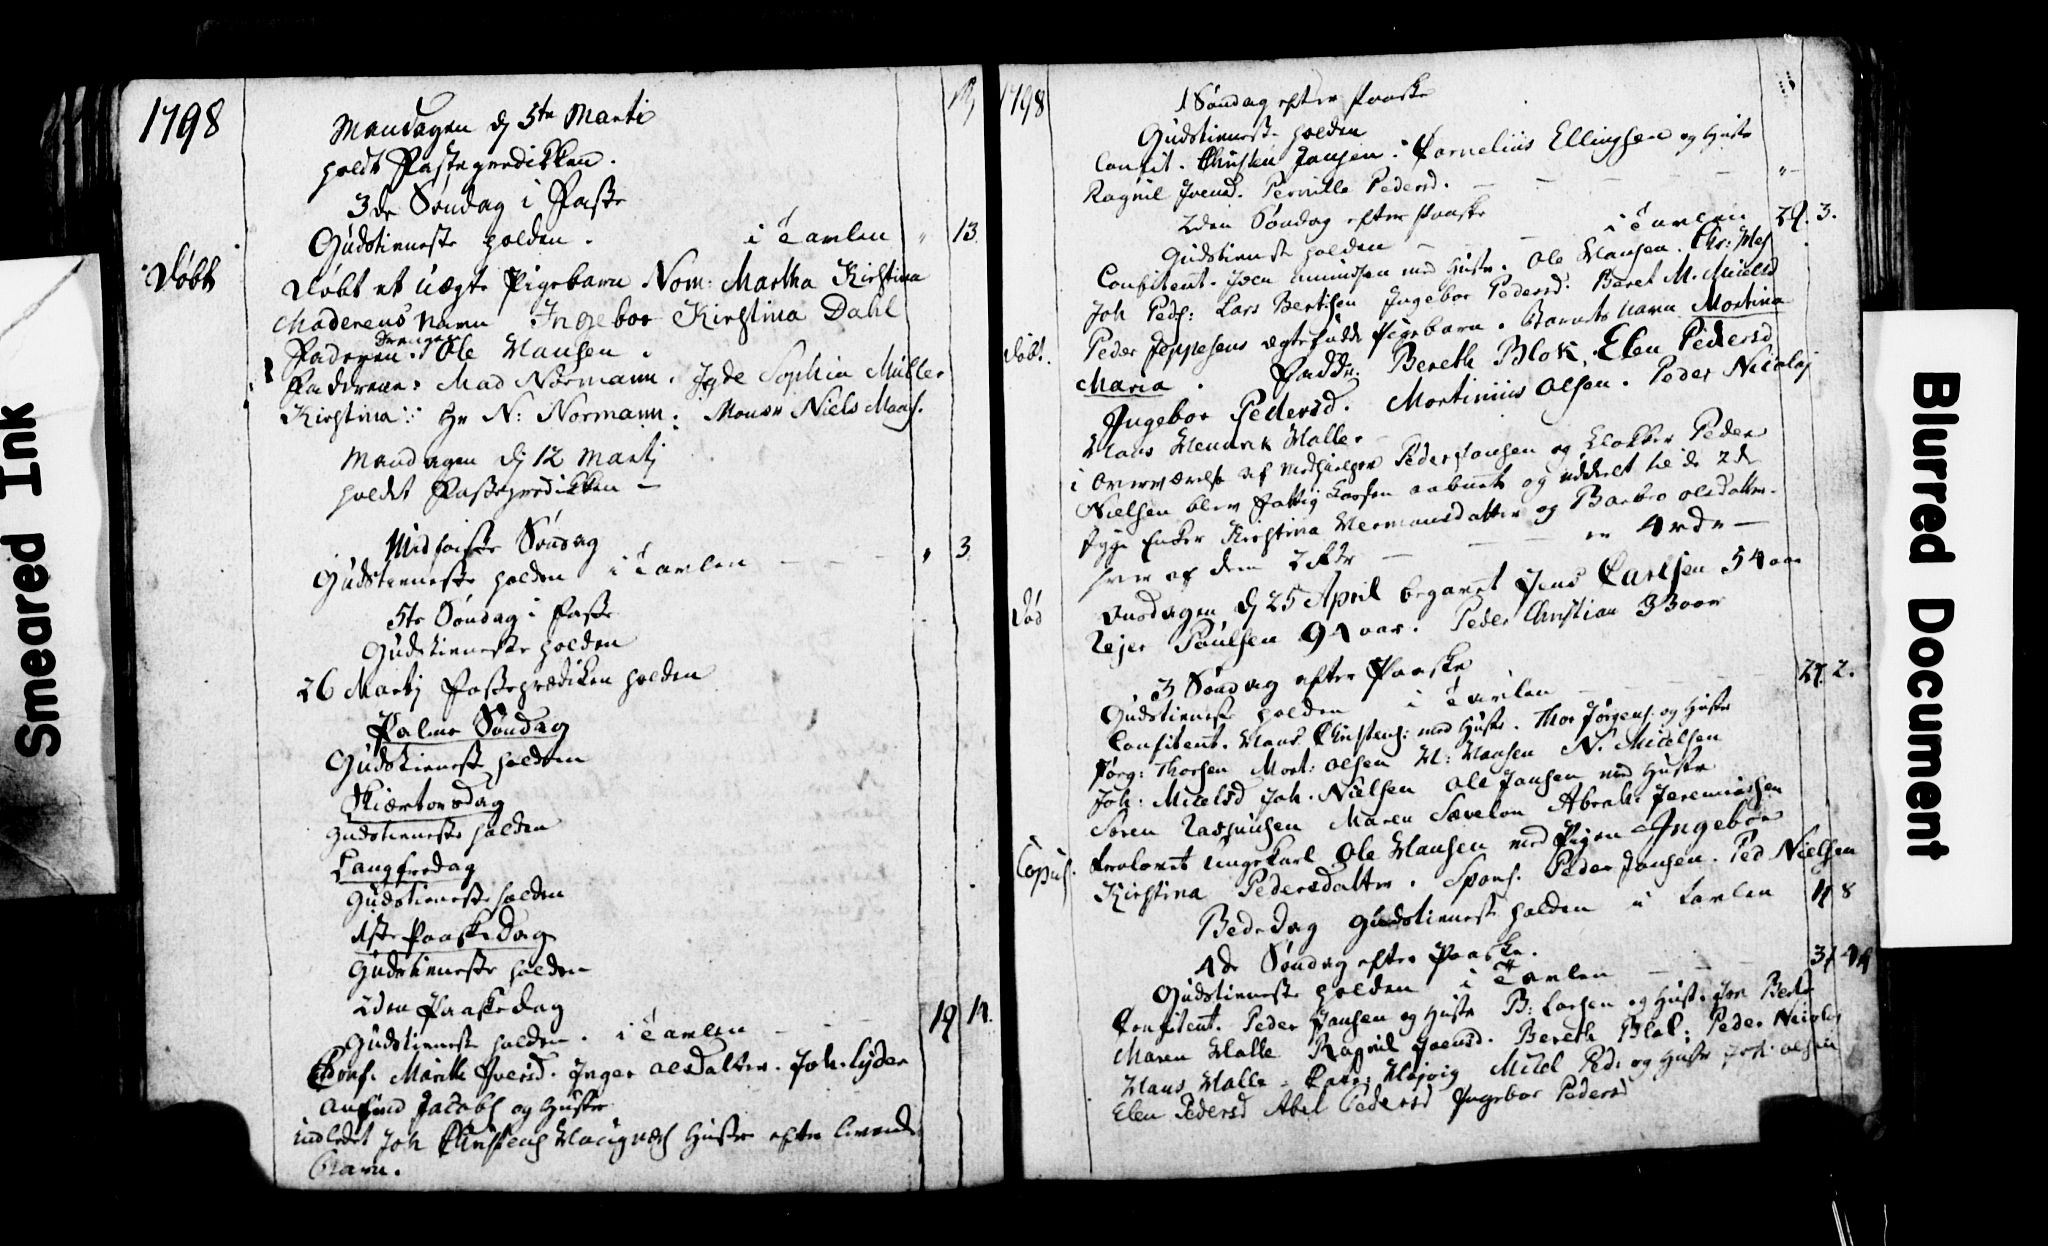 1798
Mandagen d 5te Marti
holdt Fasteprediken.
3de Søndag i Faste
Gudstieneste holden. i Tavlen " 13.
Døbt
Døbt et uægte Pigebarn Nom: Martha Kirstina
Moderens Navn Ingebor Kirstina Dahl
Faderen: Drengen Ole Hansen.
Fadderne: Mad Normann. Jgde Sophia Müller
Kirstina Hr N: Normann. Monsr Niels
Mandagen d 12 Martj
holdt Fasteprediken
Midfaste Søndag
Gudstieneste holden i Tavlen " 3
5te Søndag i Faste
Gudstieneste holden
26 Martj Fasteprædiken holden
Palme Søndag
Gudstieneste holden
Skiærtorsdag
Gudstieneste holden
Langfredag
Gudstieneste holden
1ste Paaske Dag
Gudstieneste holden
2den Paaskedag
Gudstieneste holden. i Tavlen 19
Conf. Marith Iversd. Inger Olsdatter. Joh. Lyder
Amund Jacobs og Hustr
indledet Joh Christens Hustr efter levende
Barn.
1798
1 Søndag efter Paaske
Gudstieneste holden
Confit. Christen Jansen. Cornelius Ellingsen og Hustr
Ragnil Joensd. Pernille Pedersd.
2den Søndag efter Paaske
Gudstieneste holden i Tavlen 29. 3.
Confitent. Joen Amundsen med Hustr. Ole Hansen.
Joh Peds: Lars Bertsen Ingebor Pedersd. Baret M. Micelsd
Døbt
Peder Jeppesens ægtefødde Pigebarn. Barnets Navn Martina
Maria. Fadd: Bereth Blok. Elen Pedersd
Ingebor Pedersd. Mortinius Olsen. Peder Nicolaj
Hans Hendrik Halle
i Overværelse af Medhielper Peder Jansen og Klokker Peder
Nielsen blev Fattig Kassen aabnet og uddeelt til de 2de
syge Enker Kirstina Hermansdatter og Barbro Olsdatter.
hver af dem 2 rdr er 4 rdr
Død
Onsdagen d 25 April begravet Jens Carlsen 54 aar
Rejer Paulsen 94 aar. Peder Christian 33 aar
3 Søndag efter Paaske
Gudstieneste holden i Tavlen 27. 2.
Confitent. Hans Christens: med Hustr. Thor Jørgens. og Hustr
Jørg: Thorsen Mort: Olsen H: Hansen N. Micelsen
Joh: Micelsd Joh. Nielsen Ole Jansen med Hustr
Søren Rasmusen Maren Abrah: Jeremiassen
Copul.
Trolovet Ungekarl Ole Hansen med Pigen Ingebor
Kirstina Pedersdatter. Spons. Peder Jansen. Ped Nielsen
Bededag Gudstieneste holden i Tavlen 8
4de Søndag efter Paaske.
Gudstieneste holden i Tavlen
Confitent. Peder Jansen og Hustr B: Larsen og Hust.
Maren Halle Ragnil Joensd. Bereth Blok: Peder Nicolaj
Hans Halle Micel Ped: og Hustr Joh: Olsen
Elen Pedersd Abel Pedersd Ingebor Pedersd
Smeared Ink
Blurred Document